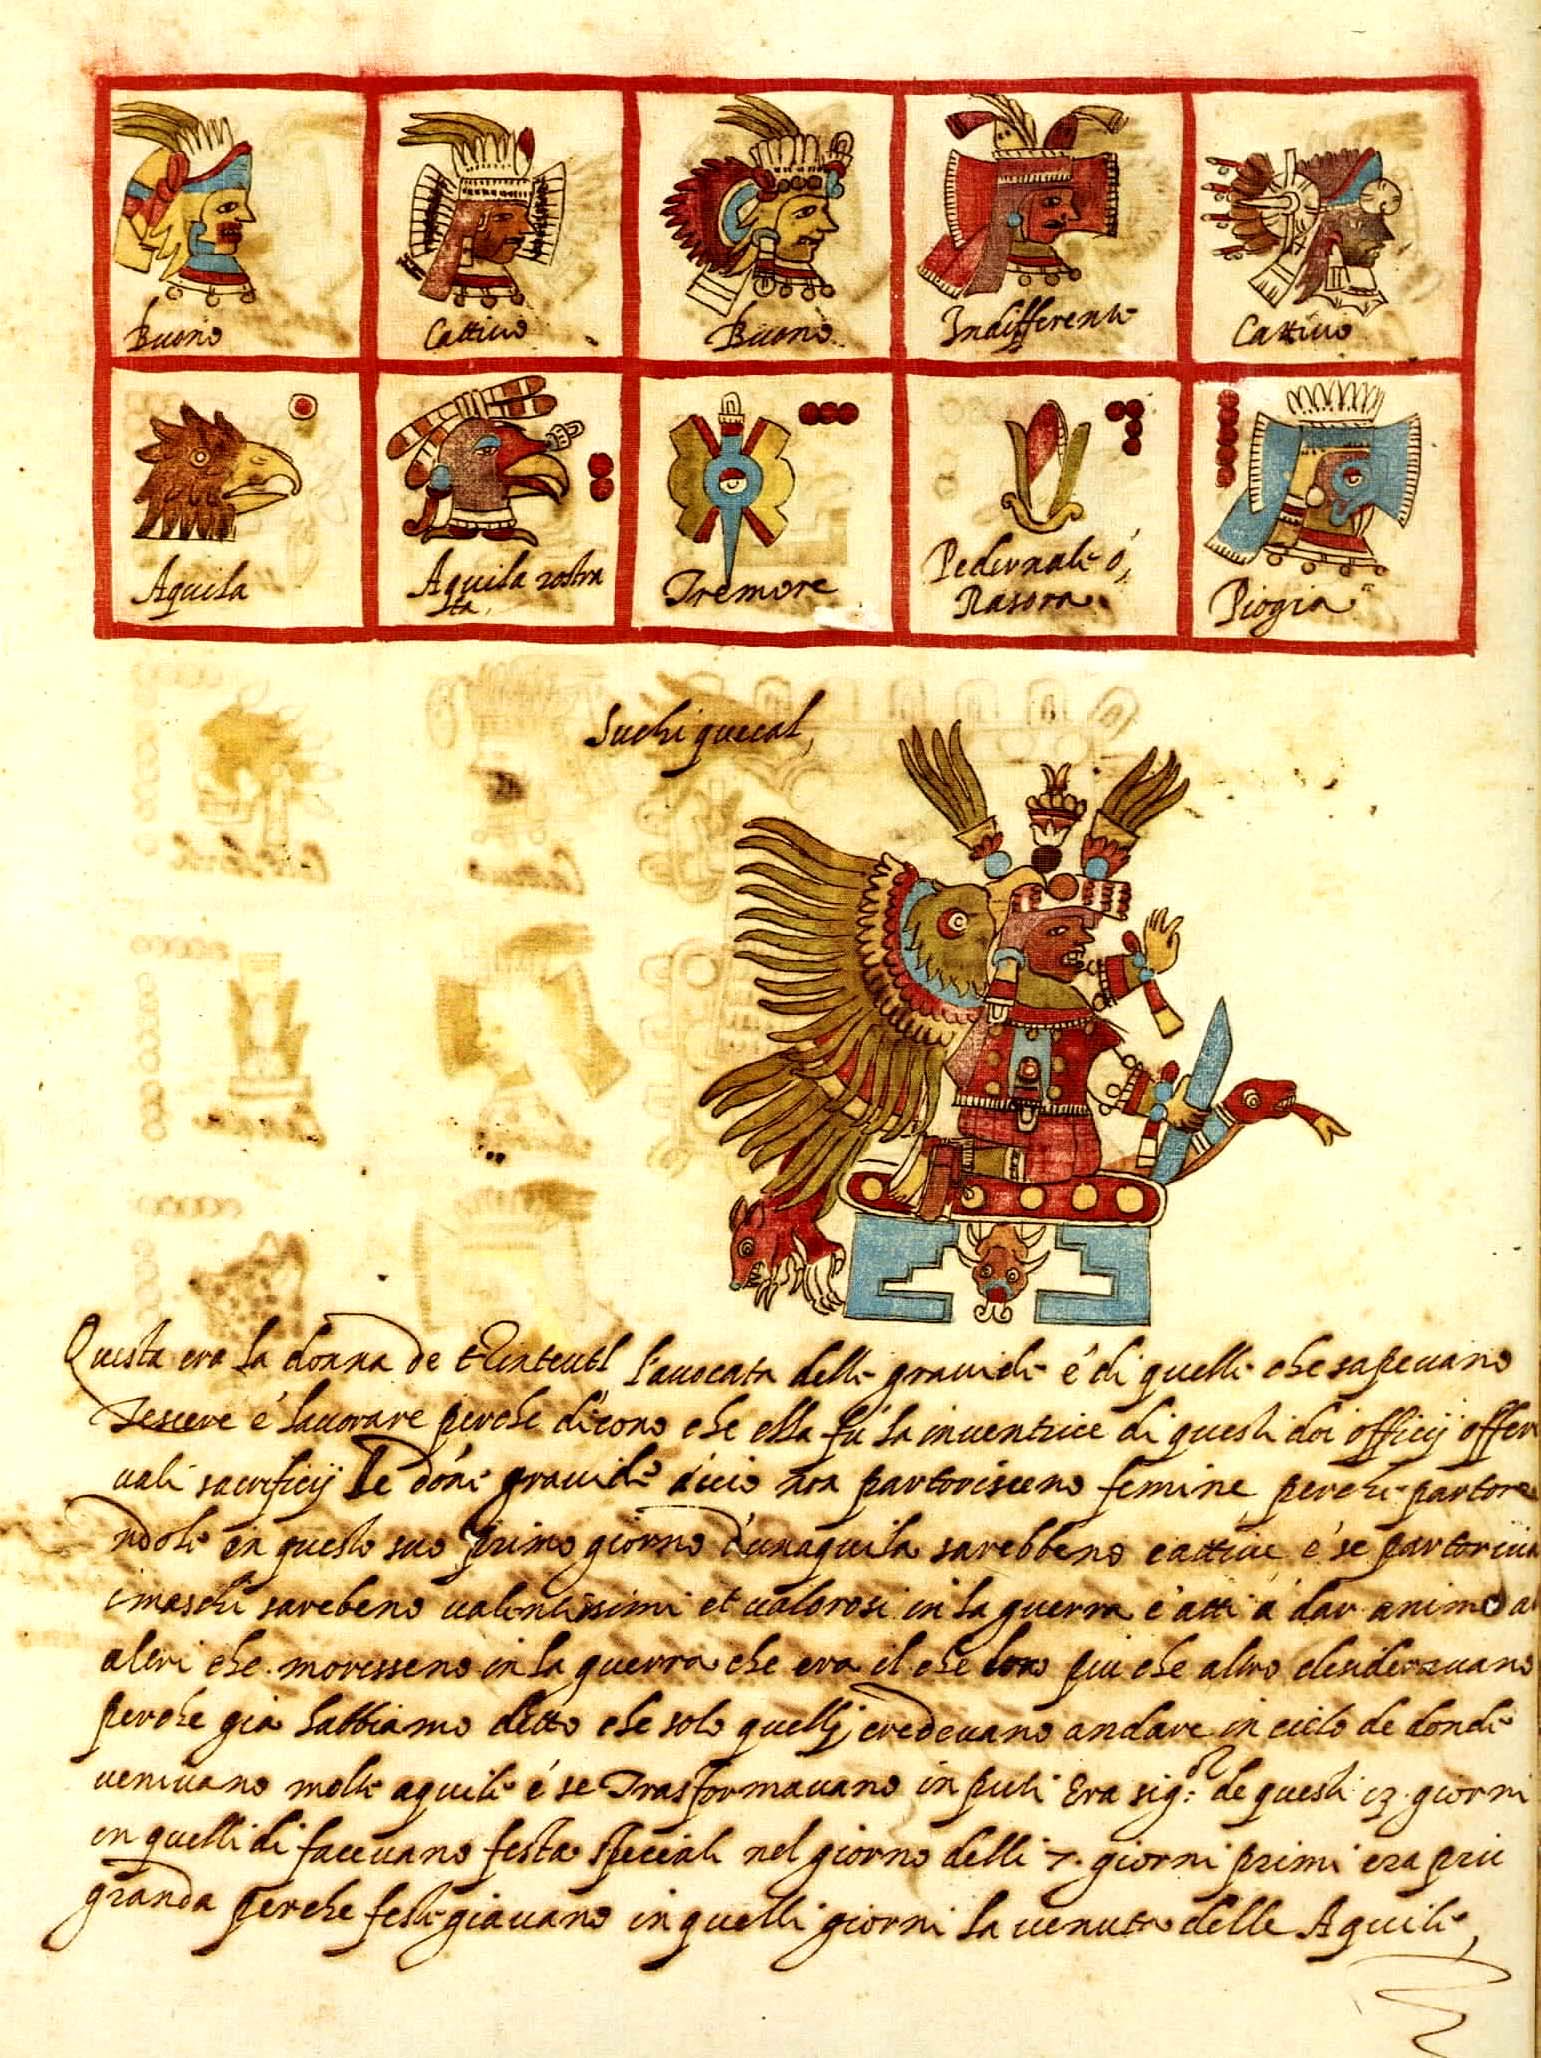 Buono
Cattiuo
Buono
Indifferente
Cattiuo
Aquila
Aquila rostra
ta
Tremore
Pedernale ó
Rasora
Piogia
Suchiquecal,
Questa era la donna de tzinteutl l'auocata delle grauide é di quelle che sapeuano
Tescere é lauorare perche dicono che ella fú la inuentrice di questi doi officij offeri
uali sacrificij le done grauide acio non partoriscene femine perche partore
ndole in questo suo primo giorno d'unaquila sarebbeno cattiue é se partoriua
i maschi sarebeno ualentissimi et ualorosi in la guerra é atti á dar animo a
altri che moresseno in la guerra che era il che loro piu che altro desiderauano
perche già habbiamo detto che solo quelli credeuano andare in cielo de donde
ueniuano molte aquile é se Trasformauano in puti Era sig.ra de questi 13. giorni
in quelli di faceuano festa speciale nel giorno delli 7. giorni primi era piu
granda perche festegiauano in quelli giorni la uenuta delle Aquile,